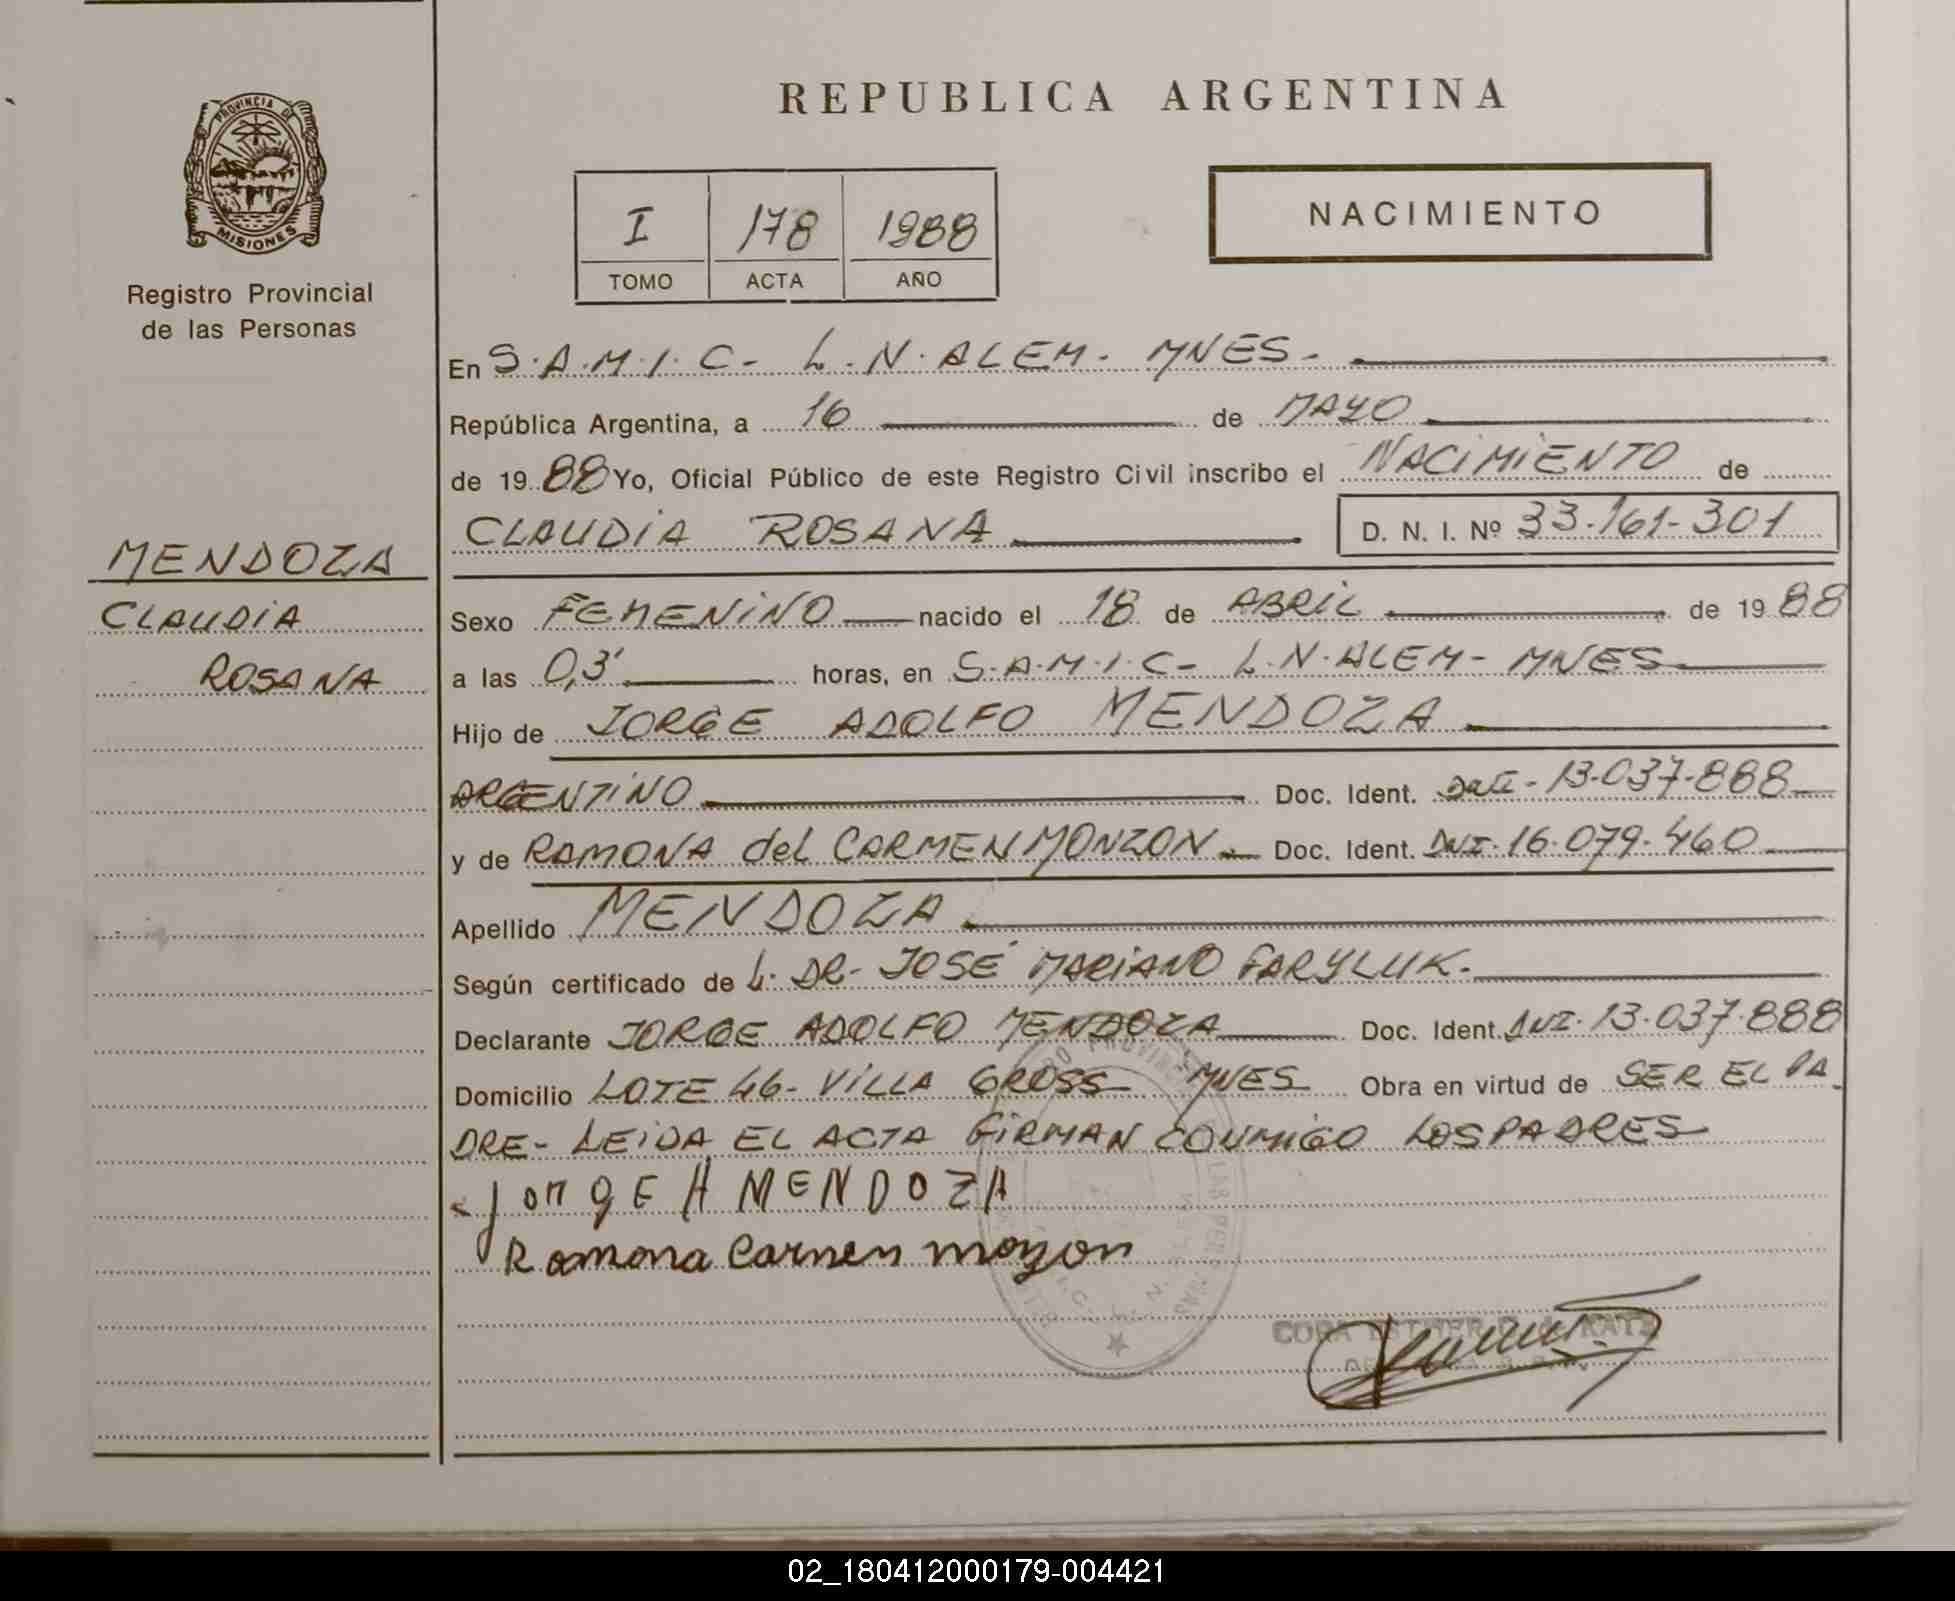 REPUBLICA ARGENTINA
PROVINCIA DE
MISIONES
Registro Provincial
de las Personas
I 178 1988
TOMO ACTA AÑO
NACIMIENTO
En S.A.M.I.C- L.N.ALEM- MNES-
República Argentina, a 16 de MAYO
de 1988 Yo, Oficial Público de este Registro Civil inscribo el NACIMIENTO de
CLAUDIA ROSANA D. N. I. Nº 33-161-301
MENDOZA
CLAUDIA
ROSANA
Sexo FEMENINO nacido el 18 de ABRIL de 1988
a las 0,3' horas, en S.A.M.I.C- L.N.ALEM- MNES
Hijo de JORGE ADOLFO MENDOZA
ARGENTINO Doc. Ident. DNI-13-037-888
y de RAMONA del CARMEN MONZON Doc. Ident. DNI-16-079-460
Apellido MENDOZA
Según certificado de L. DR- JOSÉ MARIANO FARYLUK.
Declarante JORGE ADOLFO MENDOZA Doc. Ident. DNI-13-037-888
Domicilio LOTE 46- VILLA GROSS MNES Obra en virtud de SER EL PA
DRE- LEIDA EL ACTA FIRMAN CONMIGO LOS PADRES
jorgE A MENDOZA
Ramona Carmen mozon
CORA ESTHER
02_180412000179-004421